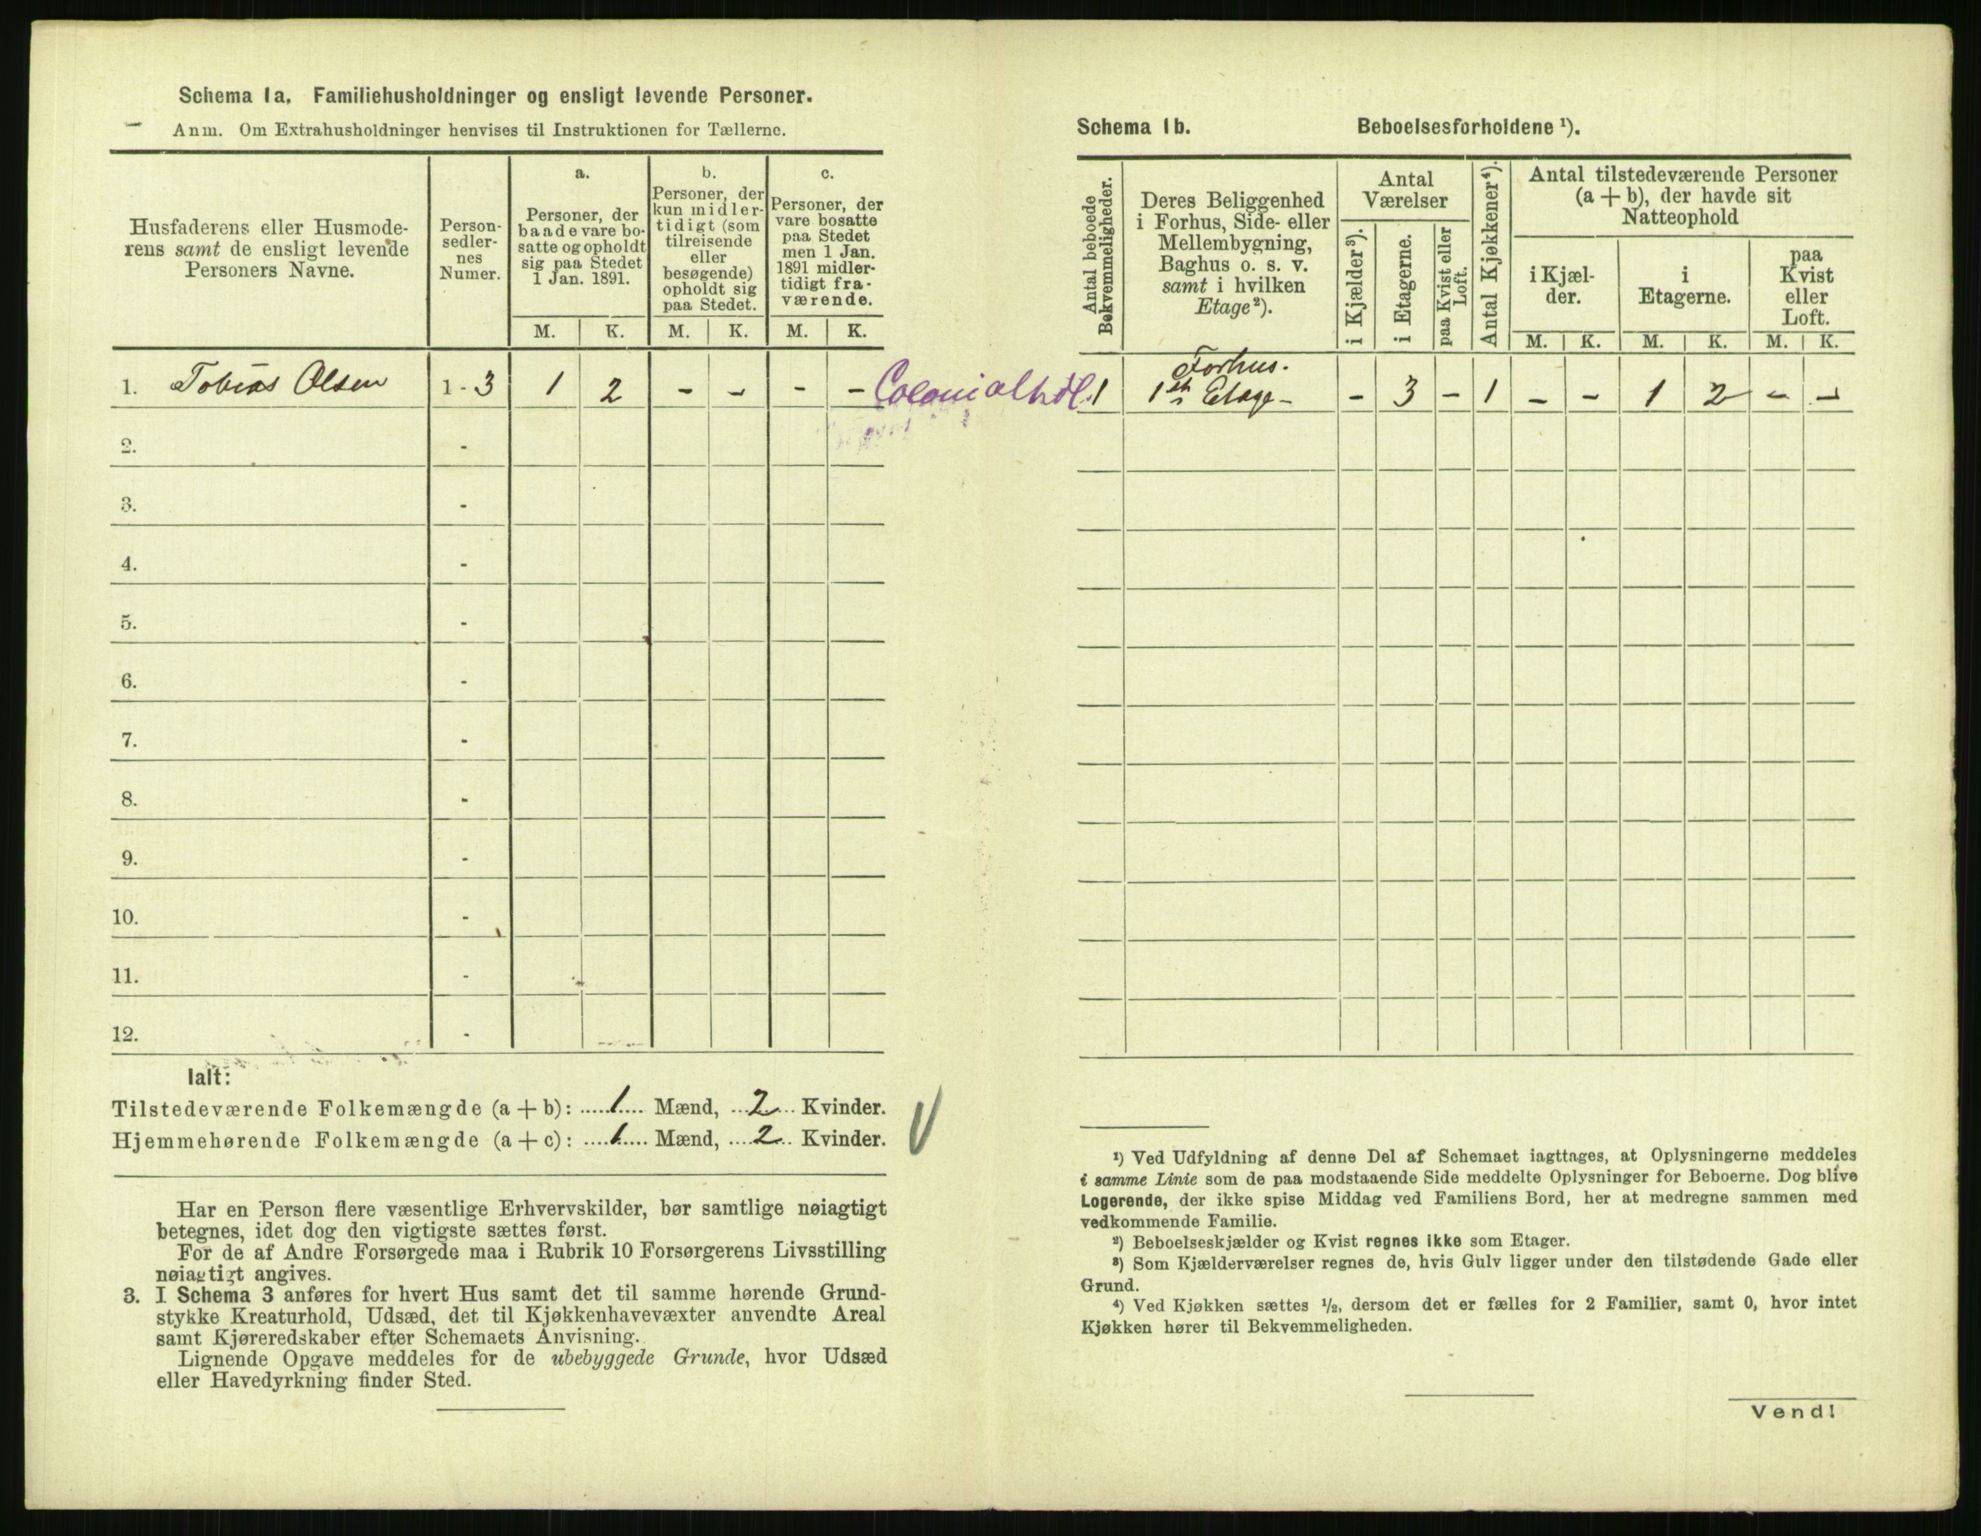 Schema 1a. Familiehusholdninger og ensligt levende Personer.
Anm. Om Extrahusholdninger henvises til Instruktionen for Tællerne.
Husfaderens eller Husmode-
rens samt de ensligt levende
Personers Navne.
Person-
sedler-
nes
Numer.
a.
Personer, der
baade vare bo-
satte og opholdt
sig paa Stedet
1 Jan. 1891.
b.
Personer, der
kun midler-
tidigt (som
tilreisende
eller
besøgende)
opholdt sig
paa Stedet.
c.
Personer, der
vare bosatte
paa Stedet
men 1 Jan.
1891 midler-
tidigt fra-
værende.
M. K. M. K. M. K.
1. Tobias Olsen 1 - 3 1 2 - - - - Colonialhdl.
2. -
3. -
4. -
5. -
6. -
7. -
8. -
9. -
10. -
11. -
12. -
Ialt:
Tilstedeværende Folkemængde (a + b): 1 Mænd, 2 Kvinder.
Hjemmehørende Folkemængde (a + c): 1 Mænd, 2 Kvinder.
Har en Person flere væsentlige Erhvervskilder, bør samtlige nøiagtigt
betegnes, idet dog den vigtigste sættes først.
For de af Andre Forsørgede maa i Rubrik 10 Forsørgerens Livsstilling
nøiagtigt angives.
3. I Schema 3 anføres for hvert Hus samt det til samme hørende Grund-
stykke Kreaturhold, Udsæd, det til Kjøkkenhavevæxter anvendte Areal
samt Kjøreredskaber efter Schemaets Anvisning.
Lignende Opgave meddeles for de ubebyggede Grunde, hvor Udsæd
eller Havedyrkning finder Sted.
Schema 1b. Beboelsesforholdene ¹).
Antal beboede
Bekvemmeligheder.
Deres Beliggenhed
i Forhus, Side- eller
Mellembygning,
Baghus o. s. v.
samt i hvilken
Etage²).
Antal
Værelser
i Kjælder³).
i Etagerne.
paa Kvist eller
Loft.
Antal Kjøkkener⁴).
Antal tilstedeværende Personer
(a + b), der havde sit
Natteophold
i Kjæl-
der.
i
Etagerne.
paa
Kvist
eller
Loft.
M. K. M. K. M. K.
Forhus.
1 1ste Etage - - 3 - 1 - - 1 2 - -
¹) Ved Udfyldning af denne Del af Schemaet iagttages, at Oplysningerne meddeles
i samme Linie som de paa modstaaende Side meddelte Oplysninger for Beboerne. Dog blive
Logerende, der ikke spise Middag ved Familiens Bord, her at medregne sammen med
vedkommende Familie.
²) Beboelseskjælder og Kvist regnes ikke som Etager.
³) Som Kjælderværelser regnes de, hvis Gulv ligger under den tilstødende Gade eller
Grund.
⁴) Ved Kjøkken sættes ½, dersom det er fælles for 2 Familier, samt 0, hvor intet
Kjøkken hører til Bekvemmeligheden.
Vend!